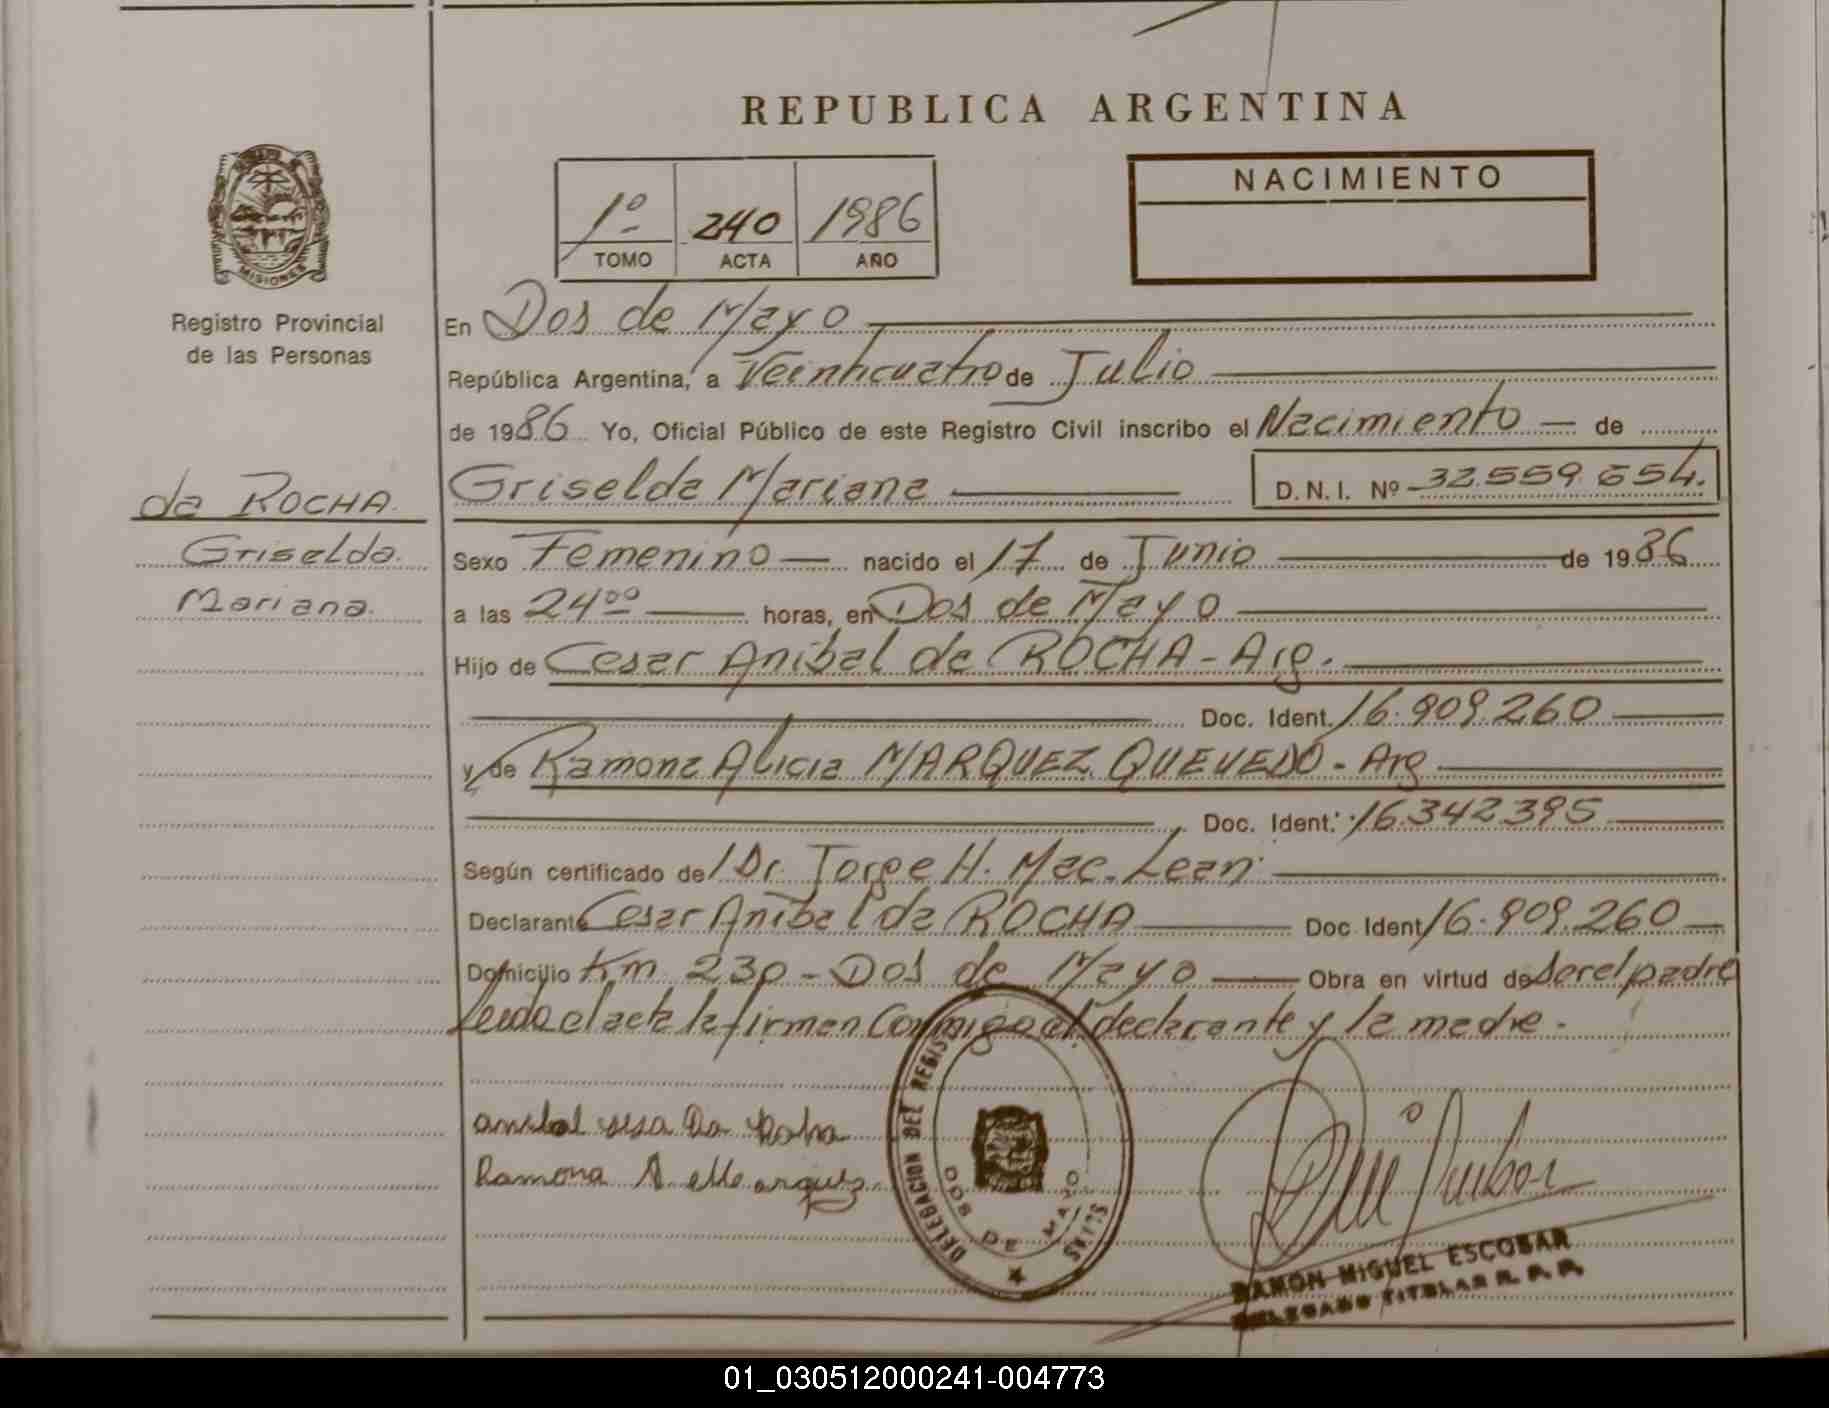 REPUBLICA ARGENTINA
MISIONES
Registro Provincial
de las Personas
1º 240 1986
TOMO ACTA AÑO
NACIMIENTO
En Dos de Mayo
República Argentina, a Veinticuatro de Julio
de 1986 Yo, Oficial Público de este Registro Civil inscribo el Nacimiento — de
da ROCHA.
Griselda
Mariana.
Griselda Mariana D.N.I. Nº 32.559.654.
Sexo Femenino — nacido el 17 de Junio de 1986
a las 24ºº horas, en Dos de Mayo
Hijo de Cesar Anibal da ROCHA - Arg.
Doc. Ident. 16.909.260
y de Ramona Alicia MARQUEZ QUEVEDO - Arg
Doc. Ident. 16.342.395
Según certificado de Dr. Jorge H. Mac. Lean
Declarante Cesar Anibal da ROCHA Doc Ident 16.909.260
Domicilio Km 230 - Dos de Mayo Obra en virtud de ser el padre
Leida el acta la firman conmigo el declarante y la madre.
anibal sesa Da Roha
Ramona A Marquez
DELEGACION DEL REGIST
DOS DE MAYO
RAMON MIGUEL ESCOBAR
DELEGADO TITULAR R. P. P.
01_030512000241-004773